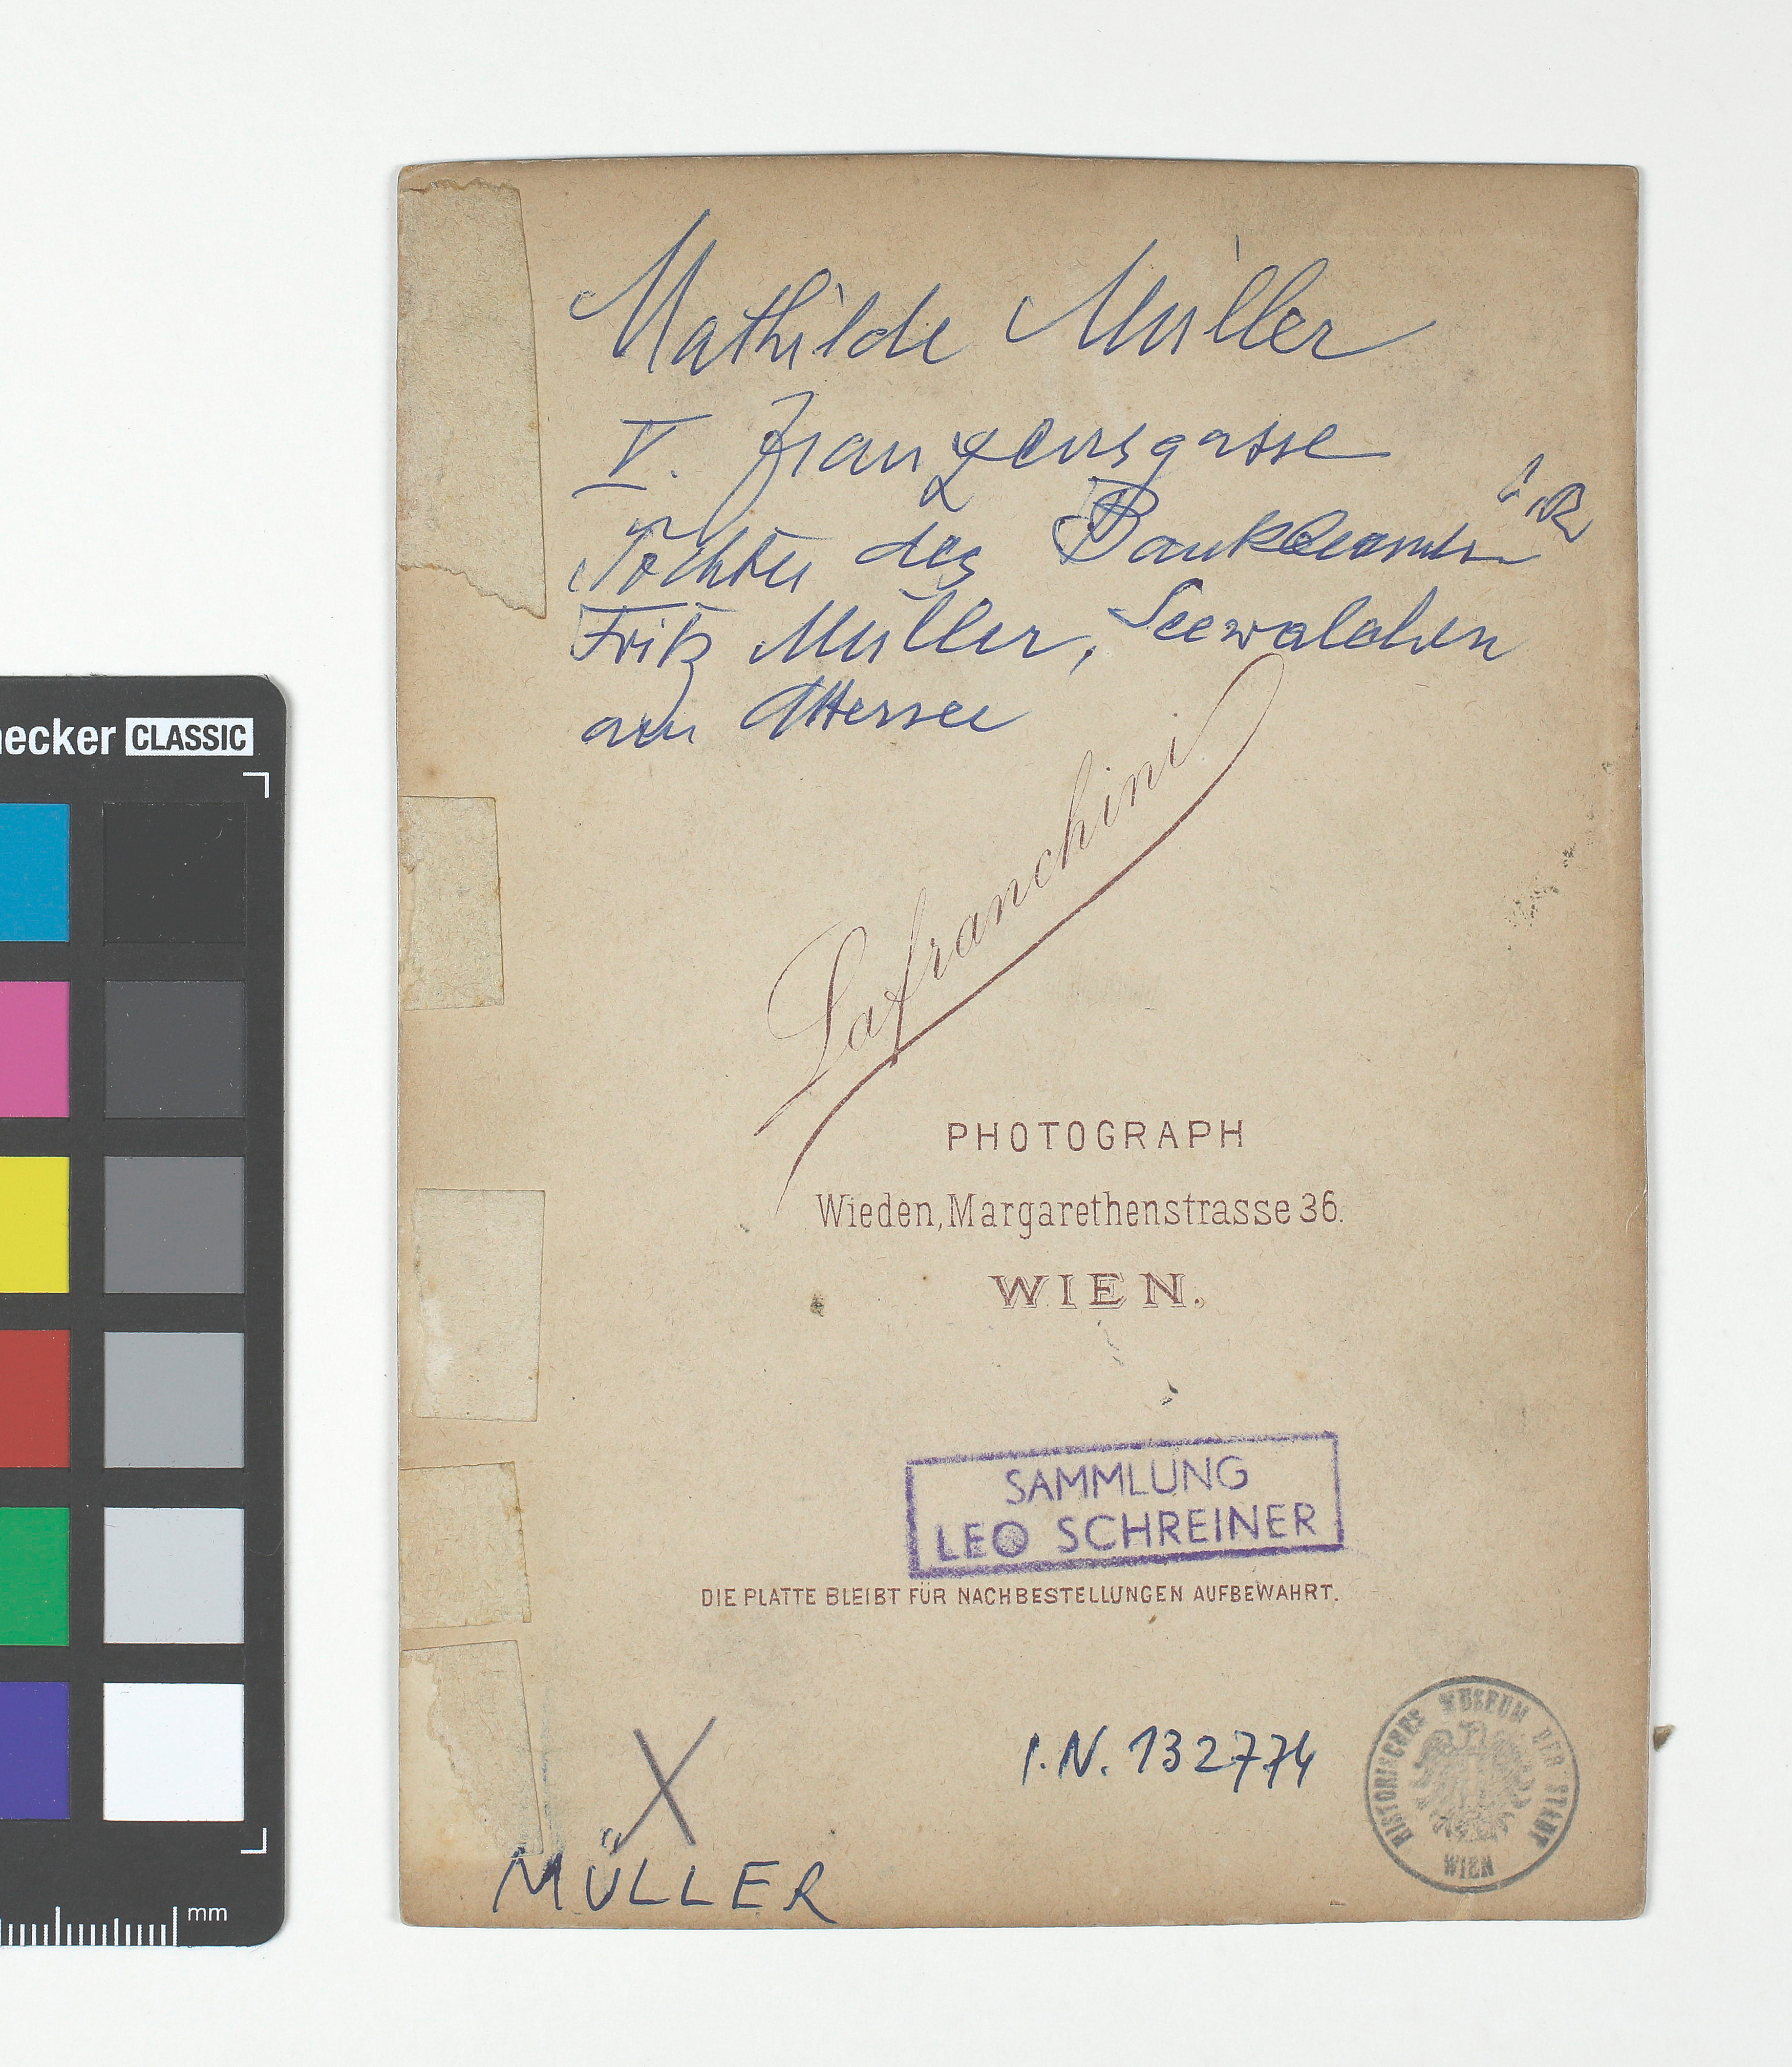 Mathilde Müller
V. Franzensgasse
Tochter des Bankbeamten i.R.
Fritz Müller, Seewalchen
am Attersee
Lafranchini
PHOTOGRAPH
Wieden, Margarethenstrasse 36.
WIEN.
SAMMLUNG
LEO SCHREINER
DIE PLATTE BLEIBT FÜR NACHBESTELLUNGEN AUFBEWAHRT.
X
I.N. 132774
HISTORISCHES MUSEUM DER STADT WIEN
MÜLLER
necker CLASSIC
mm